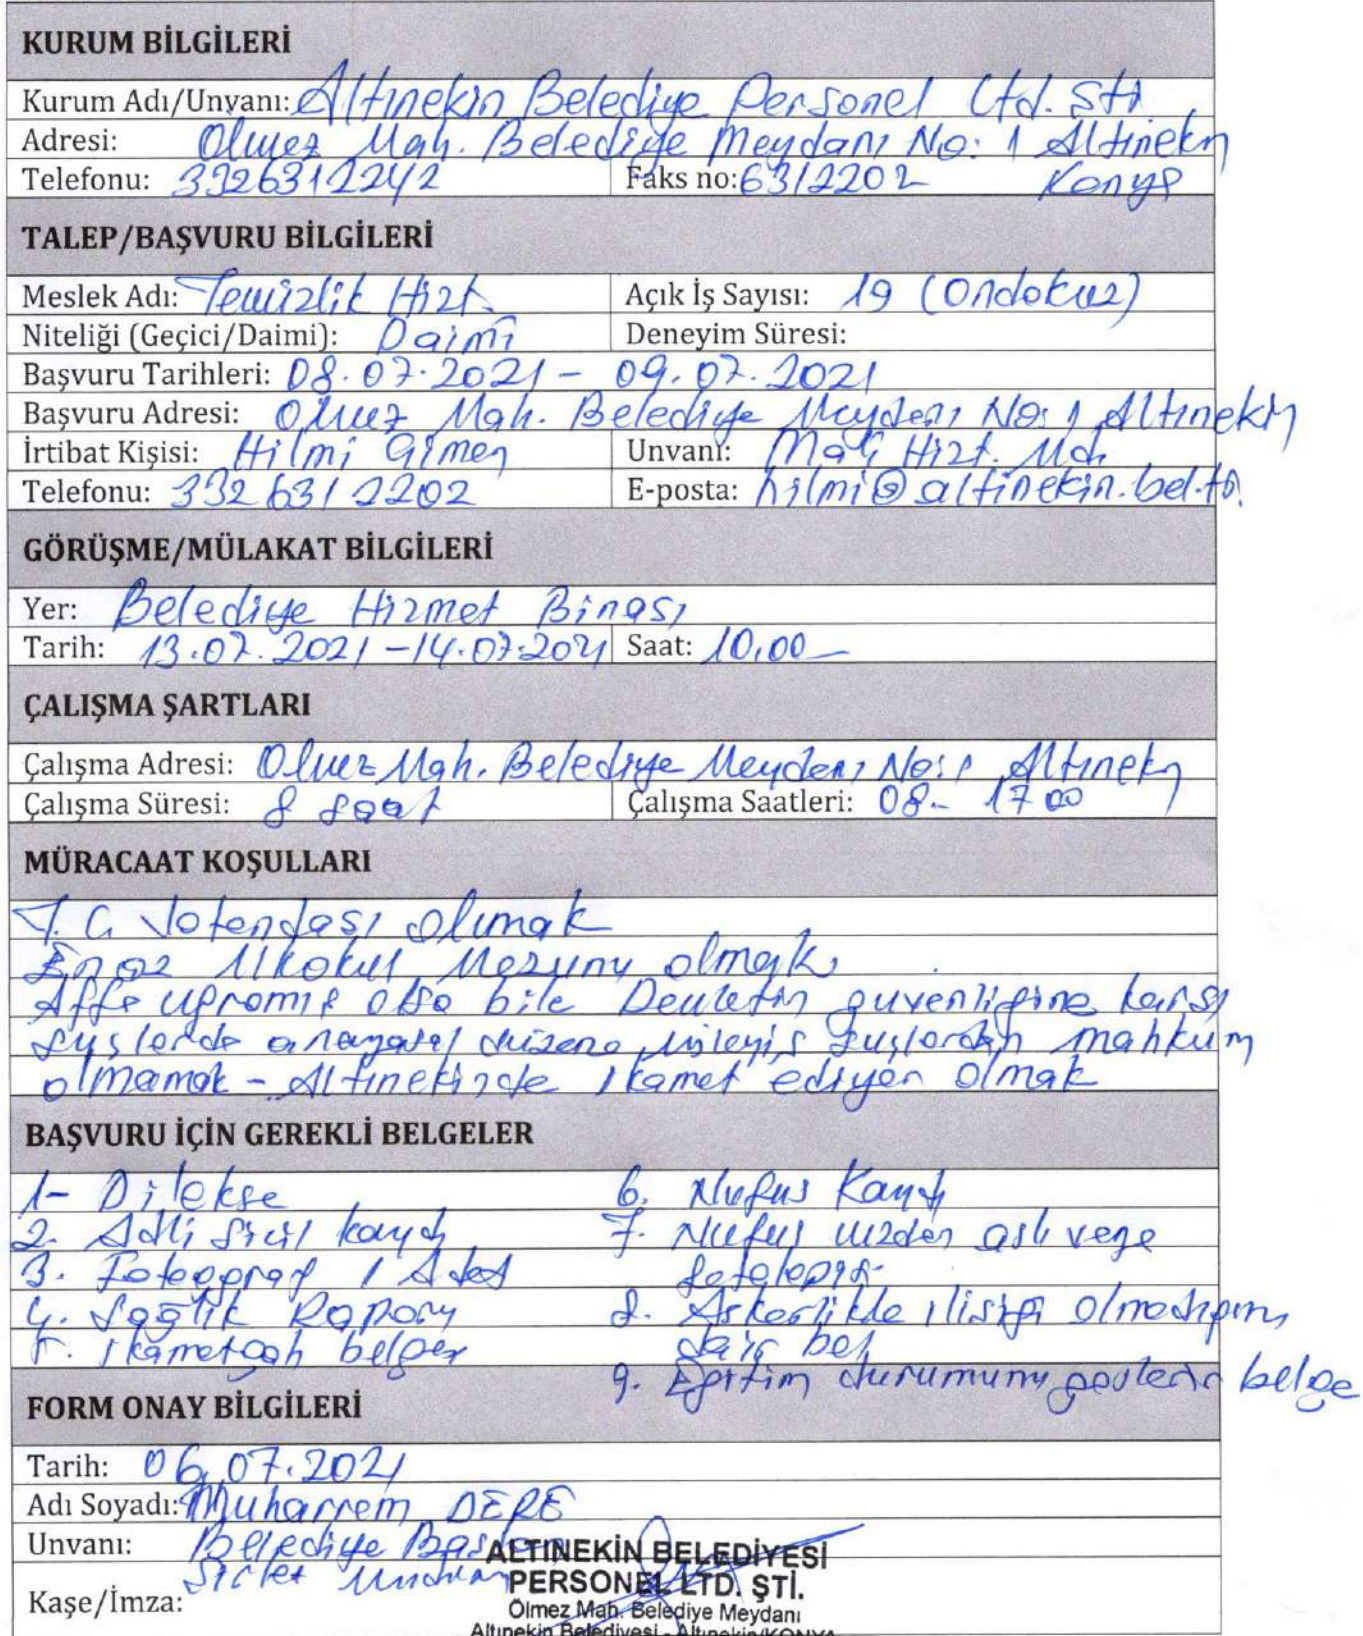 KURUM BİLGİLERİ
Kurum Adı/Unvanı: Altınekin Belediye Personel Ltd. Şti
Adresi: Ölmez Mah. Belediye Meydanı No: 1 Altınekin
Telefonu: 3326312242 Faks no: 6312202 Konya
TALEP/BAŞVURU BİLGİLERİ
Meslek Adı: Temizlik Hizt. Açık İş Sayısı: 19 (Ondokuz)
Niteliği (Geçici/Daimi): Daimi Deneyim Süresi:
Başvuru Tarihleri: 08.07.2021 - 09.07.2021
Başvuru Adresi: Ölmez Mah. Belediye Meydanı No: 1 Altınekin
İrtibat Kişisi: Hilmi Unvanı: Mali Hizt. Md.
Telefonu: 332 631 2202 E-posta: hilmi@altinekin.bel.tr.
GÖRÜŞME/MÜLAKAT BİLGİLERİ
Yer: Belediye Hizmet Binası
Tarih: 13.07.2021 - 14.07.2021 Saat: 10,00
ÇALIŞMA ŞARTLARI
Çalışma Adresi: Ölmez Mah. Belediye Meydanı No: 1 Altınekin
Çalışma Süresi: 8 saat Çalışma Saatleri: 08 - 17 00
MÜRACAAT KOŞULLARI
T.C. Vatandaşı olmak
En az ilkokul Mezunu olmak,
Affa uğramış olsa bile Devletin güvenliğine karşı
suçlarda anayasal düzene suçlardan mahkum
olmamak - Altınekinde ikamet ediyor olmak
BAŞVURU İÇİN GEREKLİ BELGELER
1- Dilekçe
2. Adli sicil kaydı
3. Fotoğraf 1 Adet
4. Sağlık Raporu
5. ikametgah belgesi
6. Nüfus Kaydı
7. Nüfus cüzdan aslı veya
fotokopisi
8. Askerlikle ilişiği olmadığını
dair bel
9. Eğitim durumunu gösterir belge
FORM ONAY BİLGİLERİ
Tarih: 06.07.2021
Adı Soyadı: Muharrem DERE
Unvanı: Belediye Başkanı
Şirket
Kaşe/İmza:
ALTINEKİN BELEDİYESİ
PERSONEL LTD. ŞTİ.
Ölmez Mah. Belediye Meydanı
Altınekin Belediyesi - Altınekin/KONYA